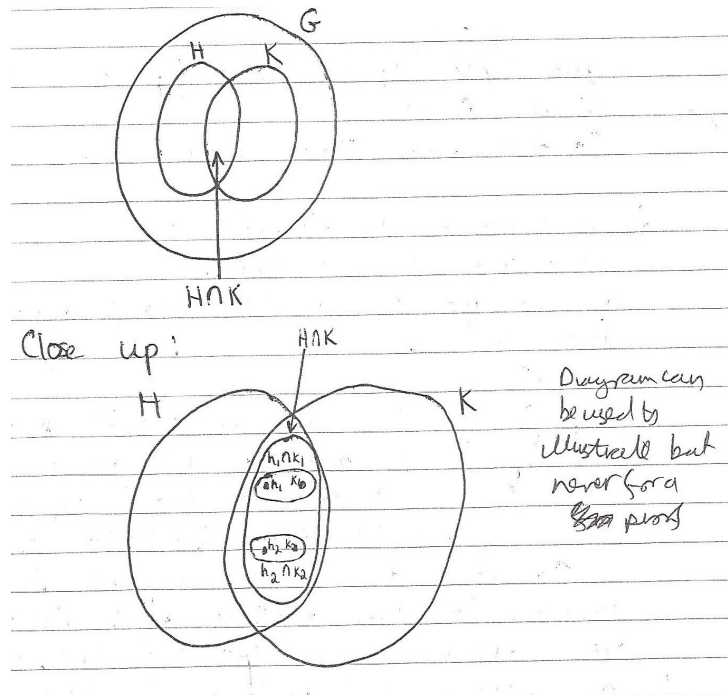 G
H K
H∩K
Close up:
H∩K
H K
h₁∩k₁
h₁ k₁
h₂ k₂
h₂∩k₂
Diagram can
be used to
illustrate but
never for a
proof